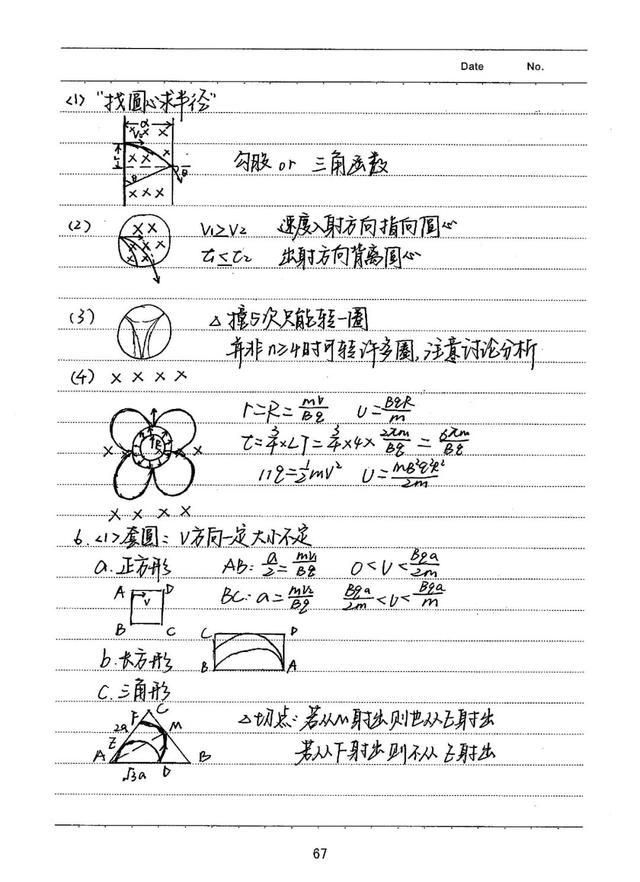 Date No.
<1> "找圆心求半径"
勾股 or 三角函数
(2) V₁≥V₂ 速度入射方向指向圆心
t₁≤t₂ 出射方向背离圆心
(3) △撞5次只能转一圈
并非n≥4时可转许多圈,注意讨论分析
(4) × × × ×
r=R=mv/Bq U=BqR/m
t=3/4×4T=3/4×4×2πm/Bq=6πm/Bq
Uq=1/2mV² U=mB²q²R²/2m
× × × ×
6.<1>套圆:V方向一定大小不定
a.正方形 AB:a/2=mv₁/Bq 0<V<Bqa/2m
A D V B C
BC:a=mv₂/Bq Bqa/2m<V<Bqa/m
b.长方形 C D B A
c.三角形
C F 2a M E A B √3a D
△切点:若从M射出则也从E射出
若从F射出则不从E射出
67